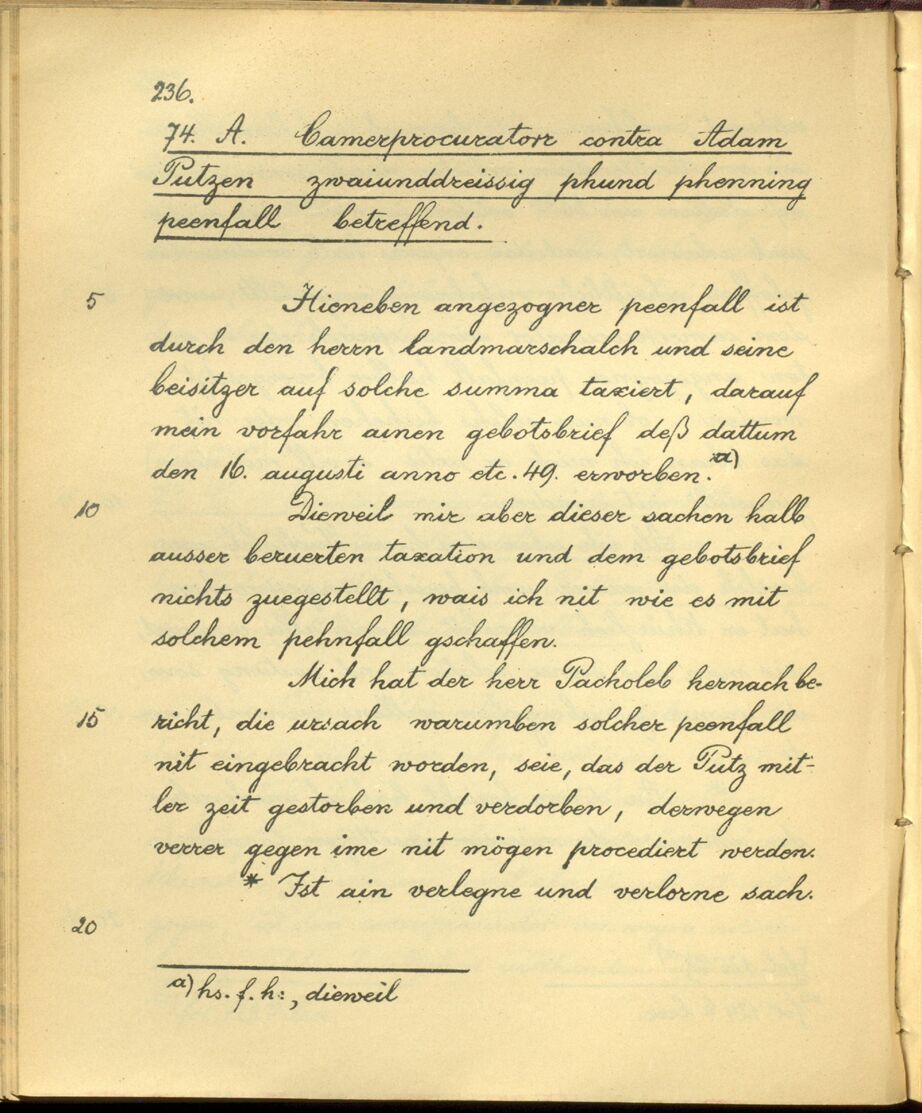 236.
74. A. Camerprocuratorr contra Adam
Putzen zwaiunddreissig phund phenning
peenfall betreffend.
5 Hieneben angezogner peenfall ist
durch den herrn landmarschalch und seine
beisitzer auf solche summa taxiert, darauf
mein vorfahr ainen gebotsbrief deß dattum
den 16. augusti anno etc. 49. erworben. a)
10 Dieweil mir aber dieser sachen halb
ausser beruerten taxation und dem gebotsbrief
nichts zuegestellt, wais ich nit wie es mit
solchem pehnfall gschaffen.
Mich hat der herr Pacholeb hernach be-
15 richt, die ursach warumben solcher peenfall
nit eingebracht worden, seie, das der Putz mit-
ler zeit gestorben und verdorben, derwegen
verrer gegen ime nit mögen procediert werden.
* Ist ain verlegne und verlorne sach.
20
a) hs. f. h:, dieweil